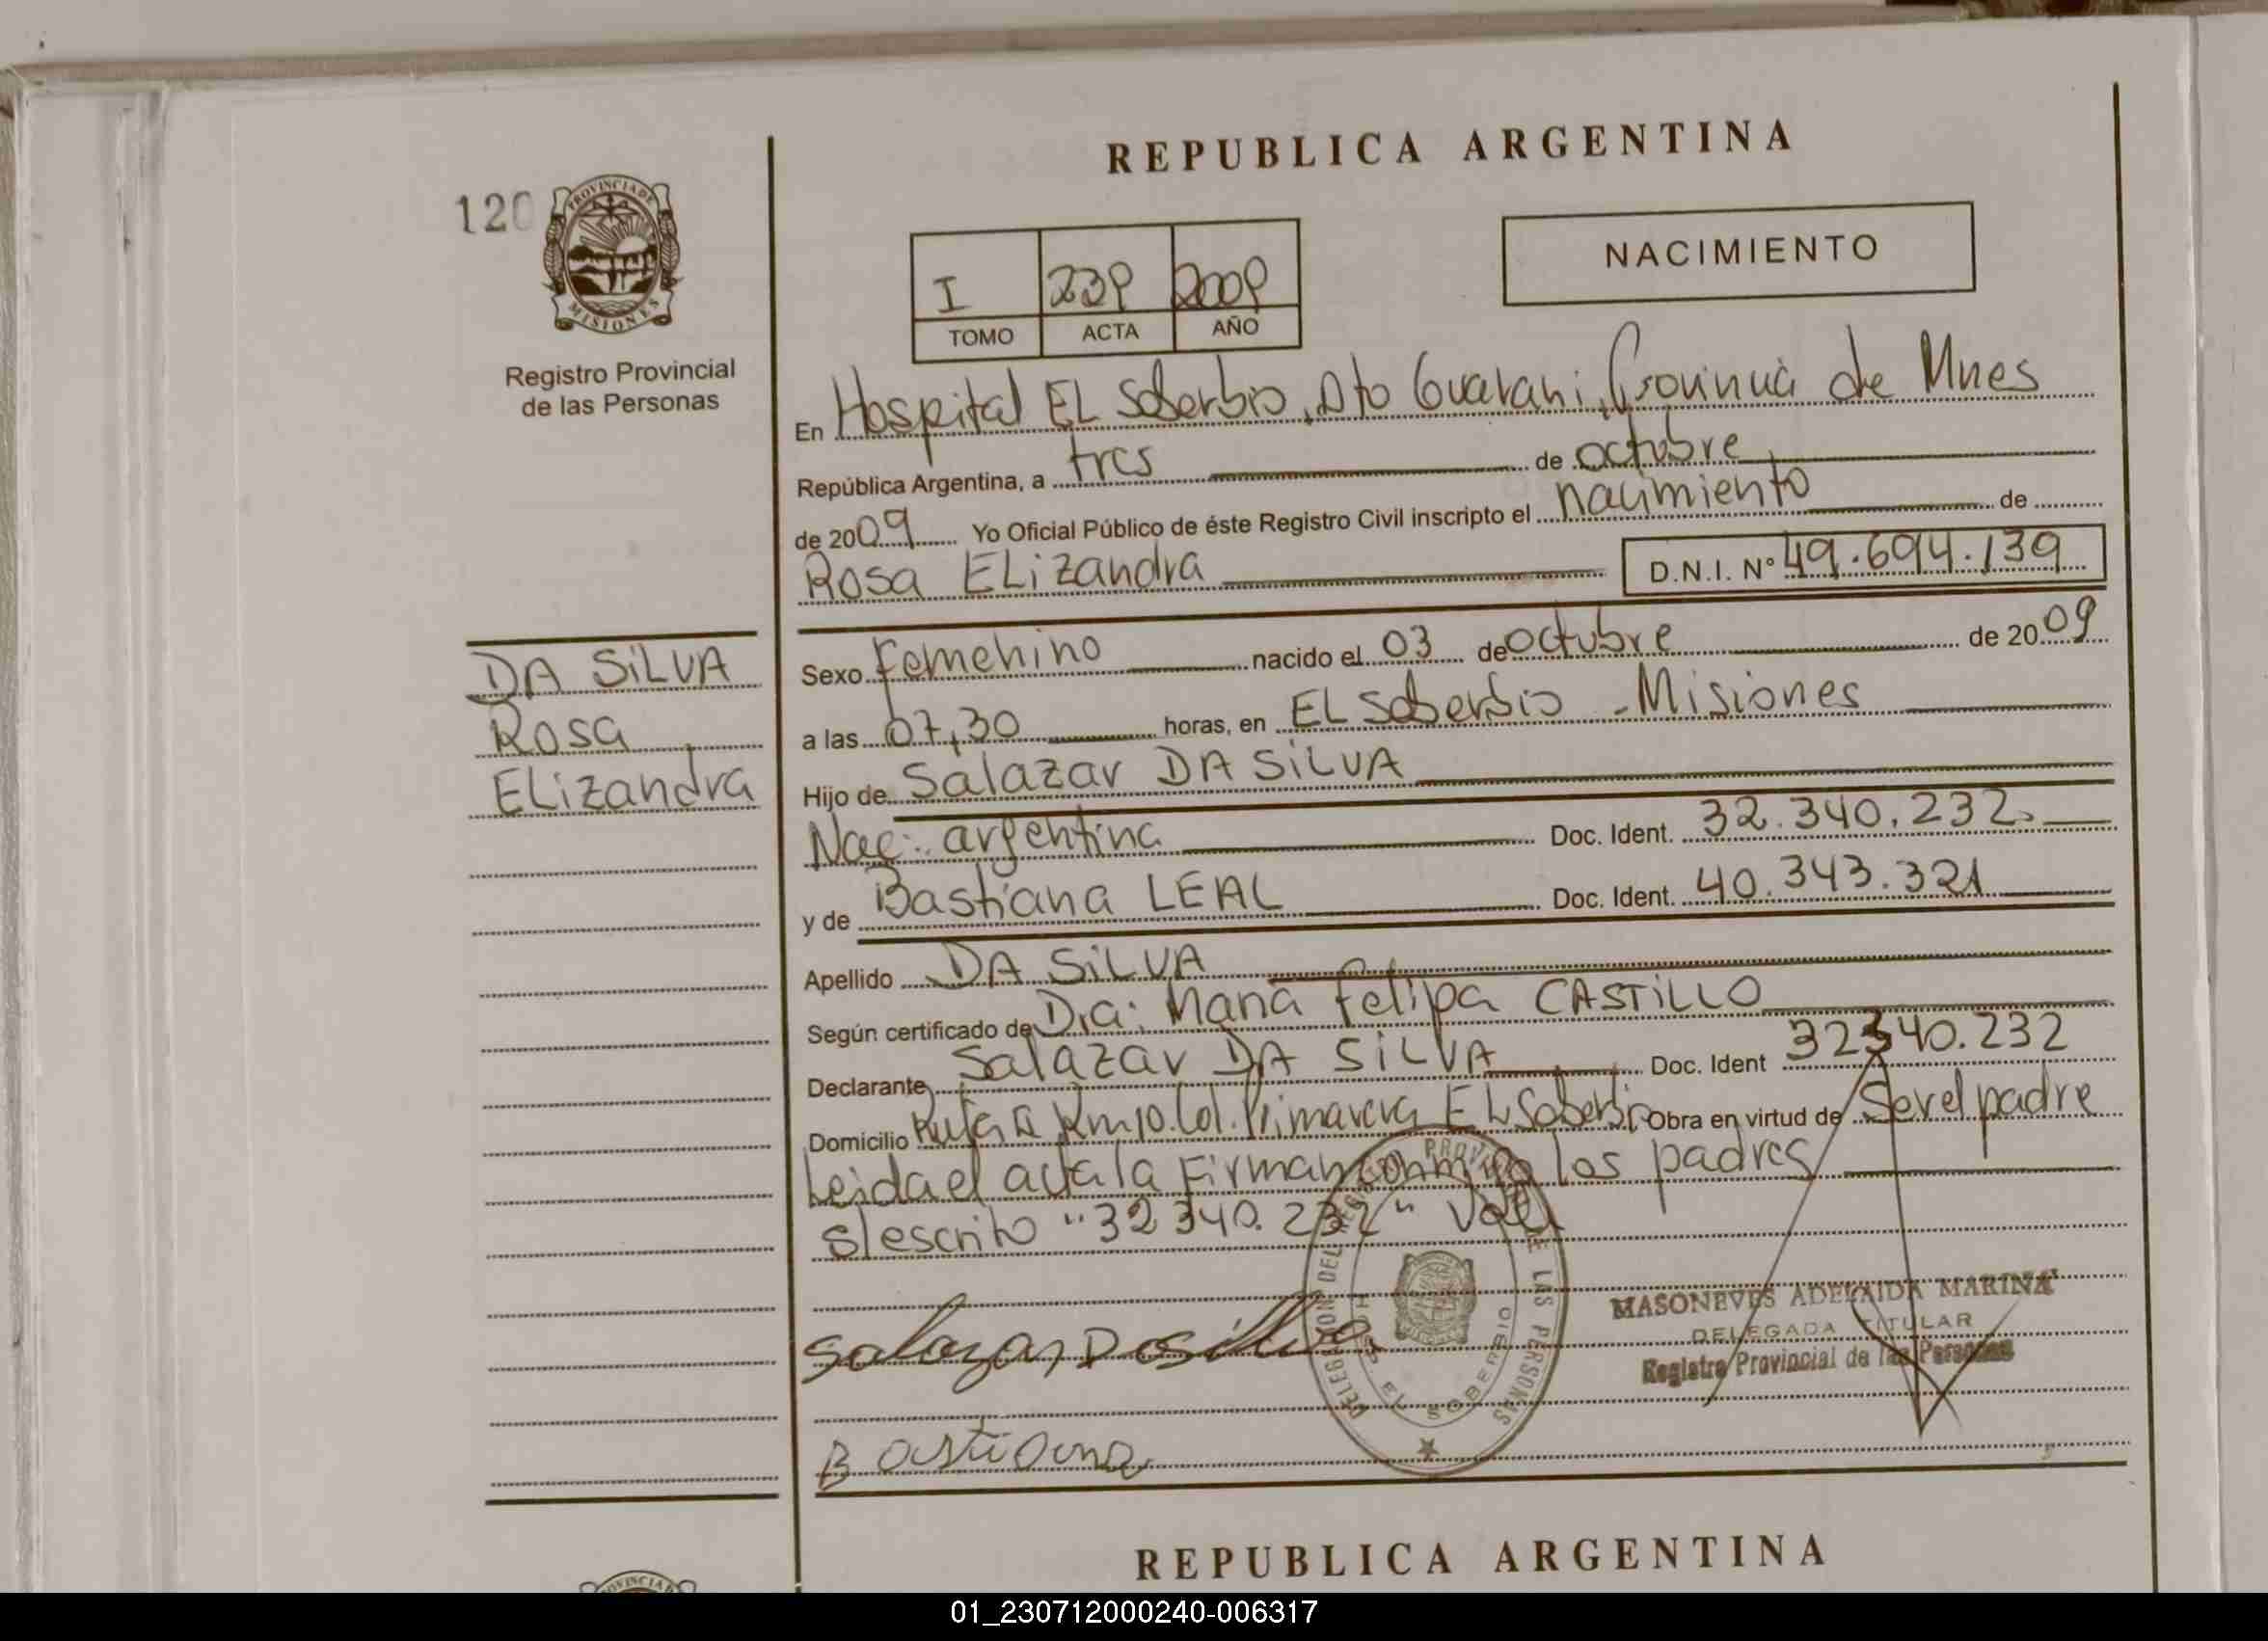 REPUBLICA ARGENTINA
120
PROVINCIA DE
MISIONES
Registro Provincial
de las Personas
I 239 2009
TOMO ACTA AÑO
NACIMIENTO
En Hospital EL Soberbio, Dto Guarani, Provincia de Mnes
República Argentina, a tres de octubre
de 2009 Yo Oficial Público de éste Registro Civil inscripto el nacimiento de
Rosa ELizandra D.N.I. Nº 49.694.139
DA SILVA
Rosa
ELizandra
Sexo Femenino nacido el 03 de octubre de 2009
a las 07,30 horas, en EL Soberbio - Misiones
Hijo de Salazar DA SILVA
Nac: argentina Doc. Ident. 32.340.232
y de Bastiana LEAL Doc. Ident. 40.343.321
Apellido DA SILVA
Según certificado de D,a: Maria Felipa CASTILLO
Declarante Salazar DA SILVA Doc. Ident 32340.232
Domicilio Ruta Km10. Col. Primavera EL Soberbio Obra en virtud de Ser el padre
Leida el acta la Firman conmigo los padres
s/escrito "32 340.232" Vale
DELEGACION DEL REGISTRO PROVINCIAL DE LAS PERSONAS
EL SOBERBIO
MASONEVES ADELAIDA MARINA
DELEGADA TITULAR
Registro Provincial de las Personas
Salazar Da Silva
Bastiana
REPUBLICA ARGENTINA
01_230712000240-006317